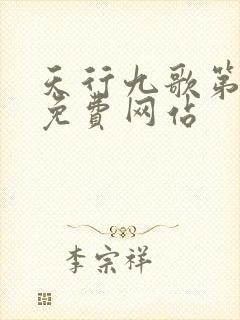 天行九歌第
免费网佔
李宗祥